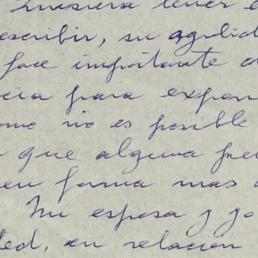 tener
escribir, su agilid
face importante
cia para expon
omo no es posible
que alguna
en forma mas
Mi esposa y yo
ted, en relación